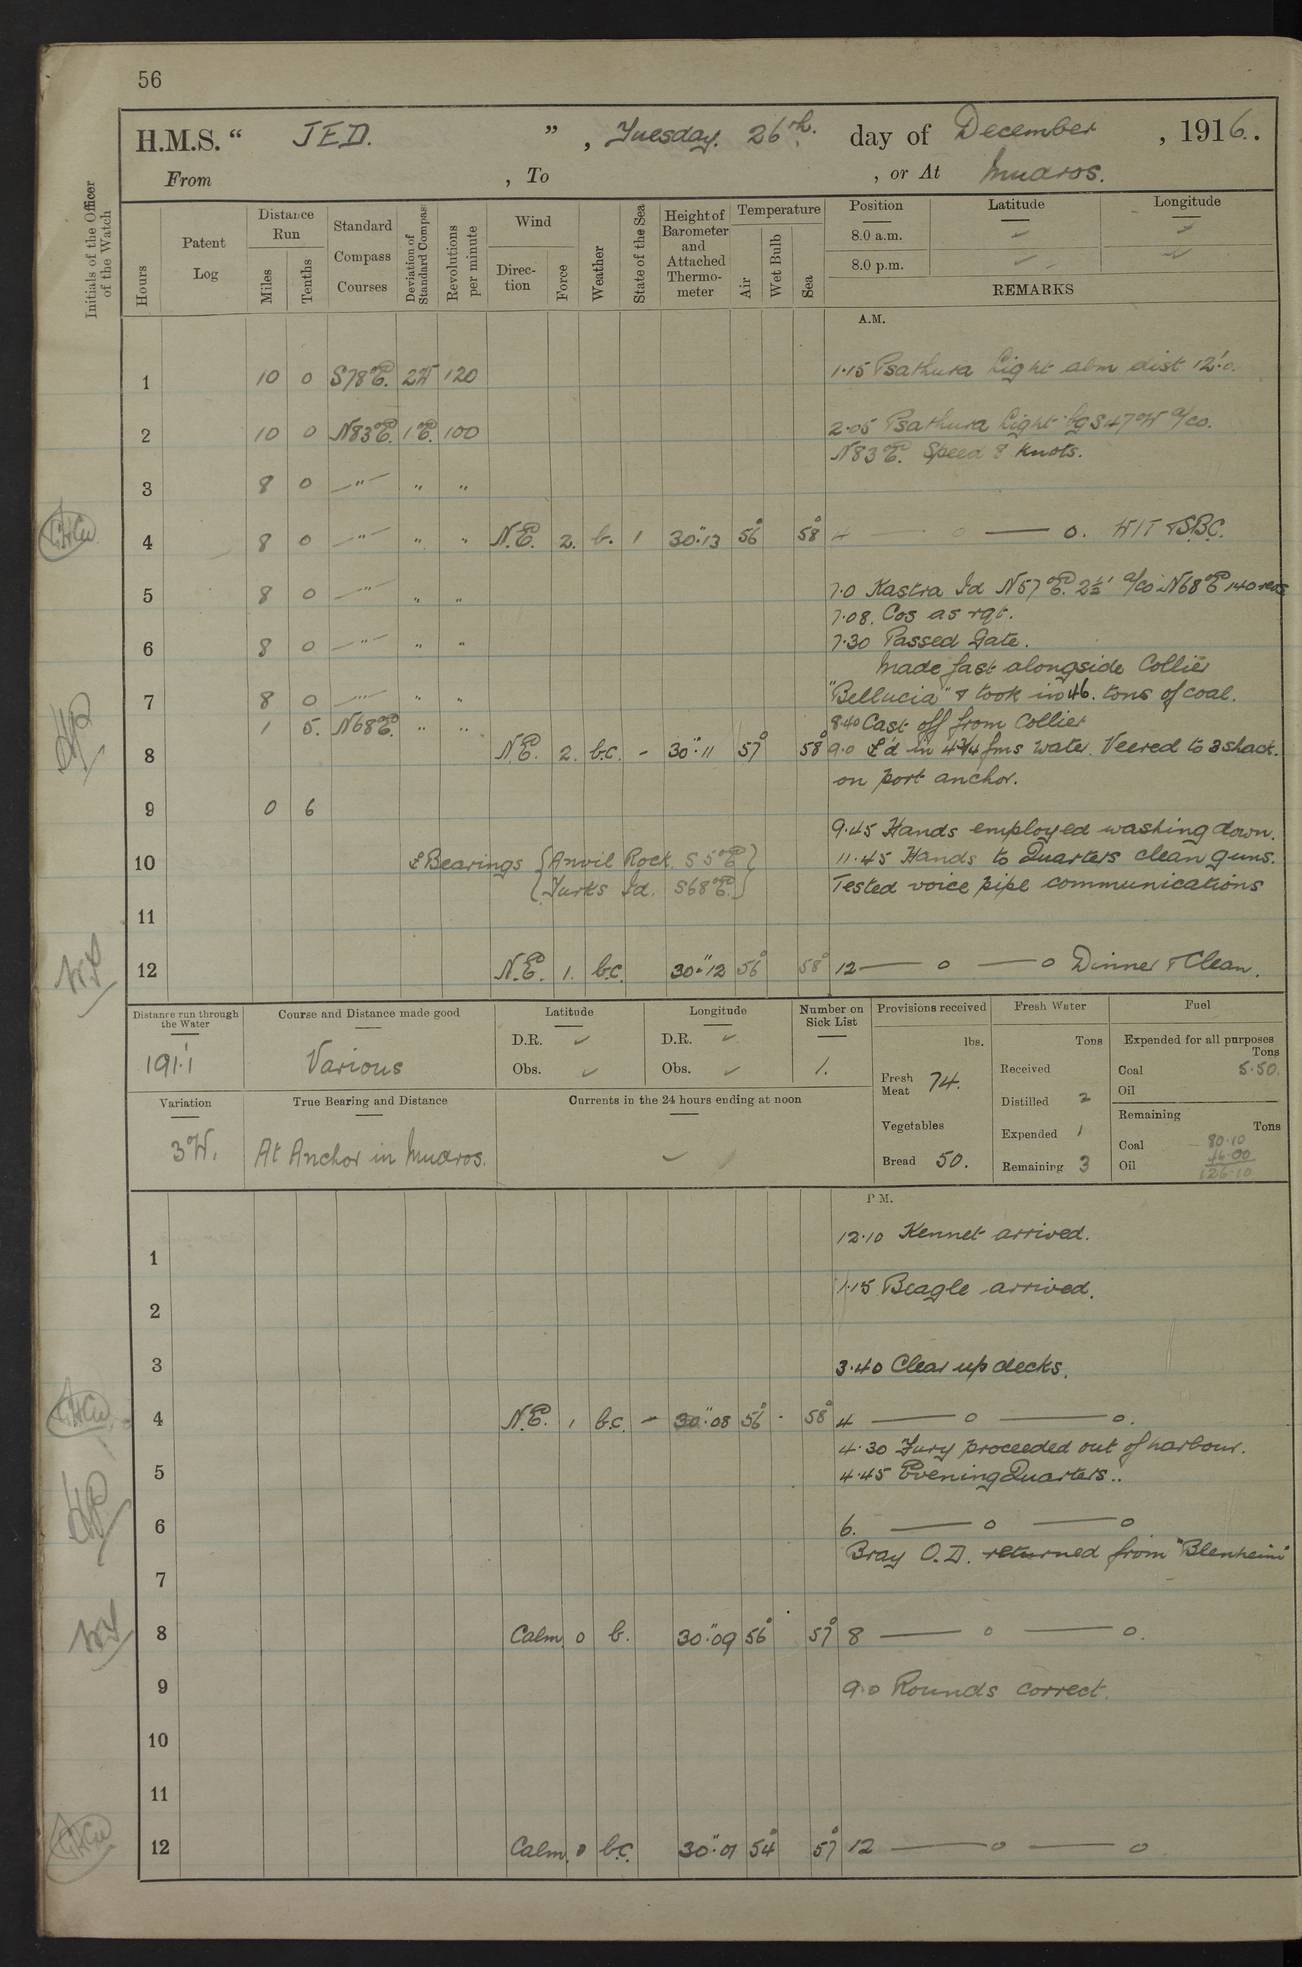 56
H.M.S. “ JED. ” , Tuesday. 26th. day of December , 1916.
From , To , or At Mudros.
Initials of the Officer of the Watch
Hours
Patent Log
Distance Run
Miles
Tenths
Standard Compass Courses
Deviation of Standard Compass
Revolutions per minute
Wind
Direction
Force
Weather
State of the Sea
Height of Barometer and Attached Thermometer
Temperature
Air
Wet Bulb
Sea
Position Latitude Longitude
8.0 a.m. ✓ ✓
8.0 p.m. ✓ ✓
REMARKS
A.M.
1 10 0 S78°E. 2W 120 1.15 Psathura Light abm dist 12'.0.
2 10 0 N83°E. 1°E. 100 2.05 Psathura Light bg S47°W a/co.
N83°E. Speed 8 knots.
3 8 0 —"— " "
4 8 0 —"— " " N.E. 2. b. 1 30".13 56° 58° 4 — o — o. W/T T.S.B.C.
5 8 0 —"— " " 7.0 Kastra Id N57°E. 2½' a/co N68°E 140 revs
7.08. Cos as rqt.
6 8 0 —"— " " 7.30 Passed Gate.
Made fast alongside Collier
7 8 0 —"— " " "Bellucia" & took in 46. tons of coal.
1 5. N68°E. " " 8.40 Cast off from Collier
8 N.E. 2. b.c. - 30".11 57° 58° 9.0 £'d in 4¾ fms water. Veered to 3 shack.
on port anchor.
9 0 6
9.45 Hands employed washing down.
10 £ Bearings {Anvil Rock. S5°E} 11.45 Hands to Quarters clean guns.
{Turks Id. S68°E.} Tested voice pipe communications
11
12 N.E. 1. b.c. 30".12 56° 58° 12 — o — o Dinner & Clean.
Distance run through the Water
191.'1
Course and Distance made good
Various
Latitude
D.R. ✓
Obs. ✓
Longitude
D.R. ✓
Obs. ✓
Number on Sick List
1.
Provisions received
lbs.
Fresh Meat 74.
Vegetables
Bread 50.
Fresh Water
Tons
Received
Distilled 2
Expended 1
Remaining 3
Fuel
Expended for all purposes
Tons
Coal 5.50.
Oil
Remaining
Tons
Coal 80.10
46.00
Oil 126.10
Variation
3°W.
True Bearing and Distance
At Anchor in Mudros.
Currents in the 24 hours ending at noon
✓
P M.
12.10 Kennet arrived.
1
1.15 Beagle arrived.
2
3 3.40 Clear up decks.
4 N.E. 1 b.c. - 30".08 56° 58° 4 — o — o.
4.30 Fury proceeded out of harbour.
5 4.45 Evening Quarters..
6 6. — o — o
Bray O.D. returned from "Blenheim"
7
8 Calm. 0 b. 30".09 56° 57° 8 — o — o.
9 9.0 Rounds correct.
10
11
12 Calm. 0 b.c. 30".07 54° 57° 12 — o — o